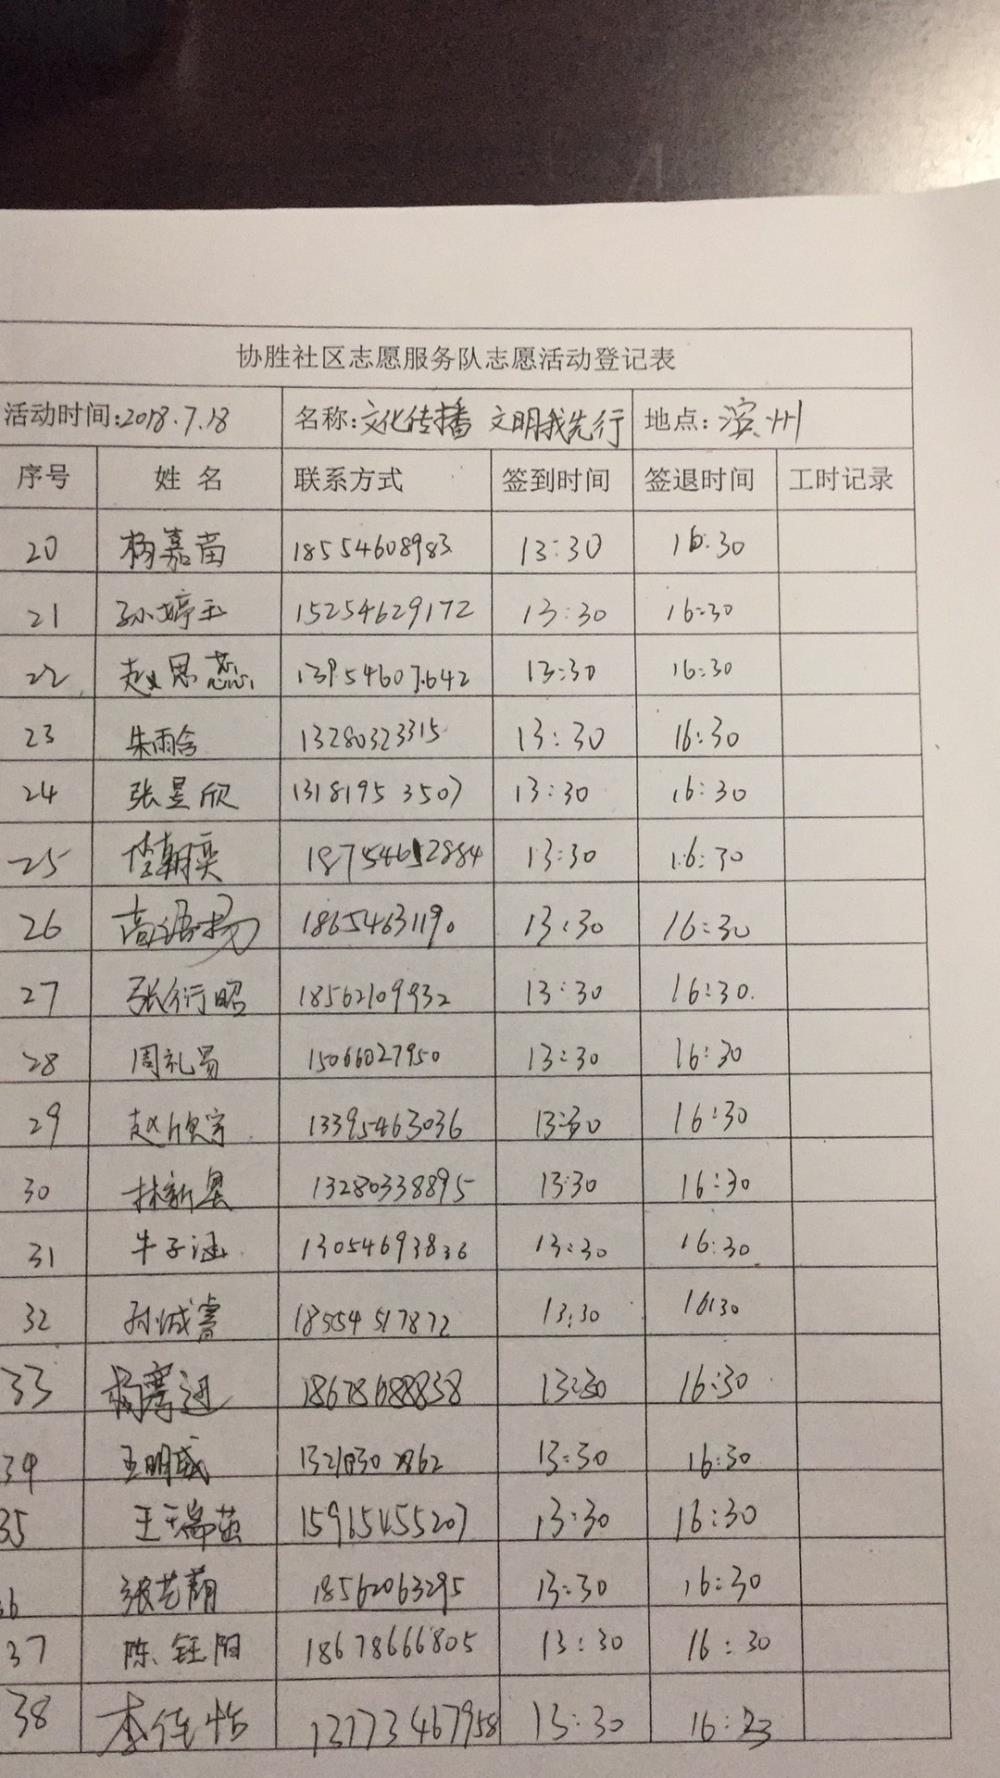 协胜社区志愿服务队志愿活动登记表
活动时间:2018.7.18 名称:文化传播 文明我先行 地点:滨州
序号 姓名 联系方式 签到时间 签退时间 工时记录
20 杨嘉苗 18554608983 13:30 16:30
21 孙婷玉 15254629172 13:30 16:30
22 赵思蕊 13954607642 13:30 16:30
23 朱雨含 13280323315 13:30 16:30
24 张昱欣 13181953507 13:30 16:30
25 李朝奕 18754612884 13:30 16:30
26 高语扬 18654631190 13:30 16:30
27 张衍昭 18562109932 13:30 16:30
28 周礼易 15066027950 13:30 16:30
29 赵欣宇 13395463036 13:30 16:30
30 林新昊 13280338895 13:30 16:30
31 牛子涵 13054693836 13:30 16:30
32 孙诚睿 18554517872 13:30 16:30
33 杨 18678688838 13:30 16:30
34 王明威 13:30 16:30
35 王瑞 15965455207 13:30 16:30
36 张艺 18562063295 13:30 16:30
37 陈钰阳 18678666805 13:30 16:30
38 李佳怡 13773467958 13:30 16:23